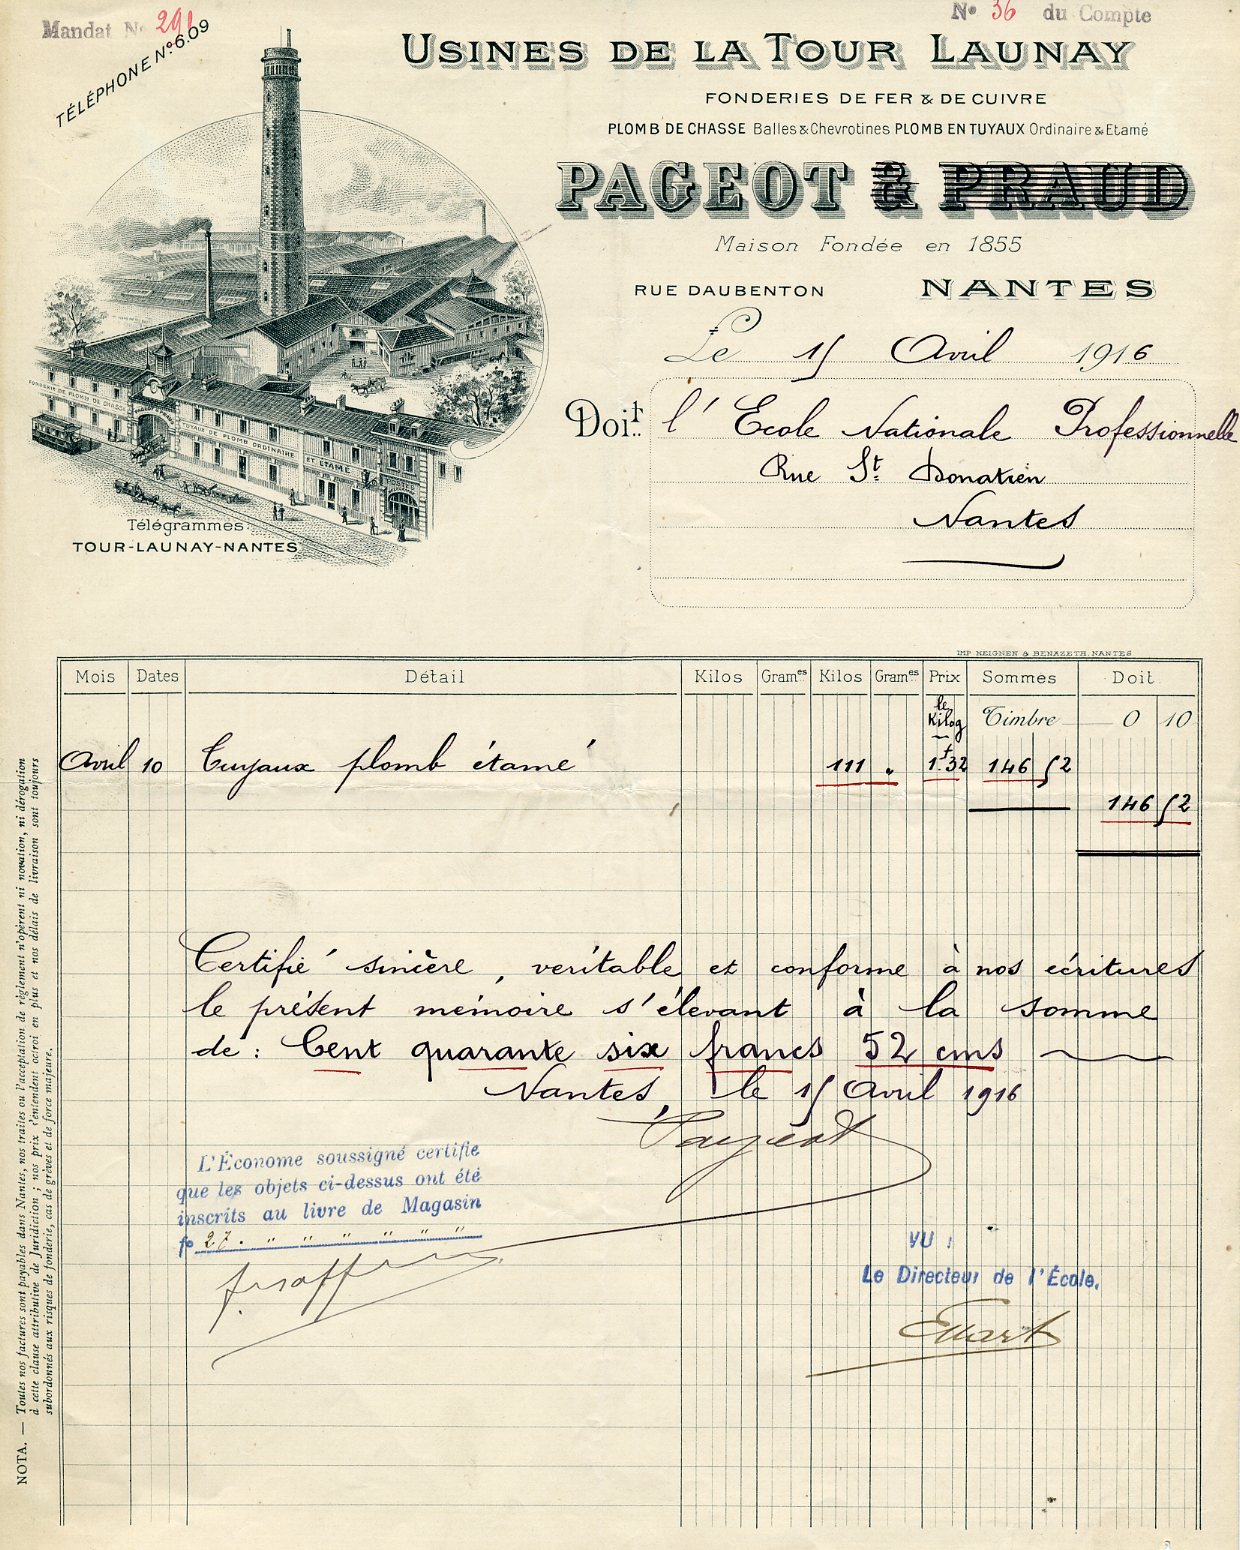 Mandat No 291
TÉLÉPHONE No 6.09
No 36 du Compte
USINES DE LA TOUR LAUNAY
FONDERIES DE FER & DE CUIVRE
PLOMB DE CHASSE Balles & Chevrotines PLOMB EN TUYAUX Ordinaire & Etamé
PAGEOT & PRAUD
Maison Fondée en 1855
RUE DAUBENTON NANTES
Le 15 Avril 1916
Doit l'Ecole Nationale Professionnelle
Rue St. Donatien
Nantes
FONDERIE DE PLOMB DE CHASSE
TUYAUX DE PLOMB ORDINAIRE ET ETAMÉ
Télégrammes
TOUR-LAUNAY-NANTES
IMP NEIGNEN & BENAZETH, NANTES
Mois Dates Détail Kilos Grames Kilos Grames Prix Sommes Doit
le Kilog Timbre 0 10
Avril 10 Tuyaux plomb étamé 111 " 1f32 146 52
146 52
Certifié sincère, véritable et conforme à nos écritures
le présent mémoire s'élevant à la somme
de : Cent quarante six francs 52 cms
Nantes, le 15 Avril 1916
Pageot
L'Économe soussigné certifie
que les objets ci-dessus ont été
inscrits au livre de Magasin
fo 27. " " " " "
VU :
Le Directeur de l'École,
NOTA. — Toutes nos factures sont payables dans Nantes, nos traites ou l'acceptation de règlement n'opèrent ni novation, ni dérogation
à cette clause attributive de Juridiction ; nos prix s'entendent octroi en plus et nos délais de livraison sont toujours
subordonnés aux risques de fonderie, cas de grèves et de force majeure.